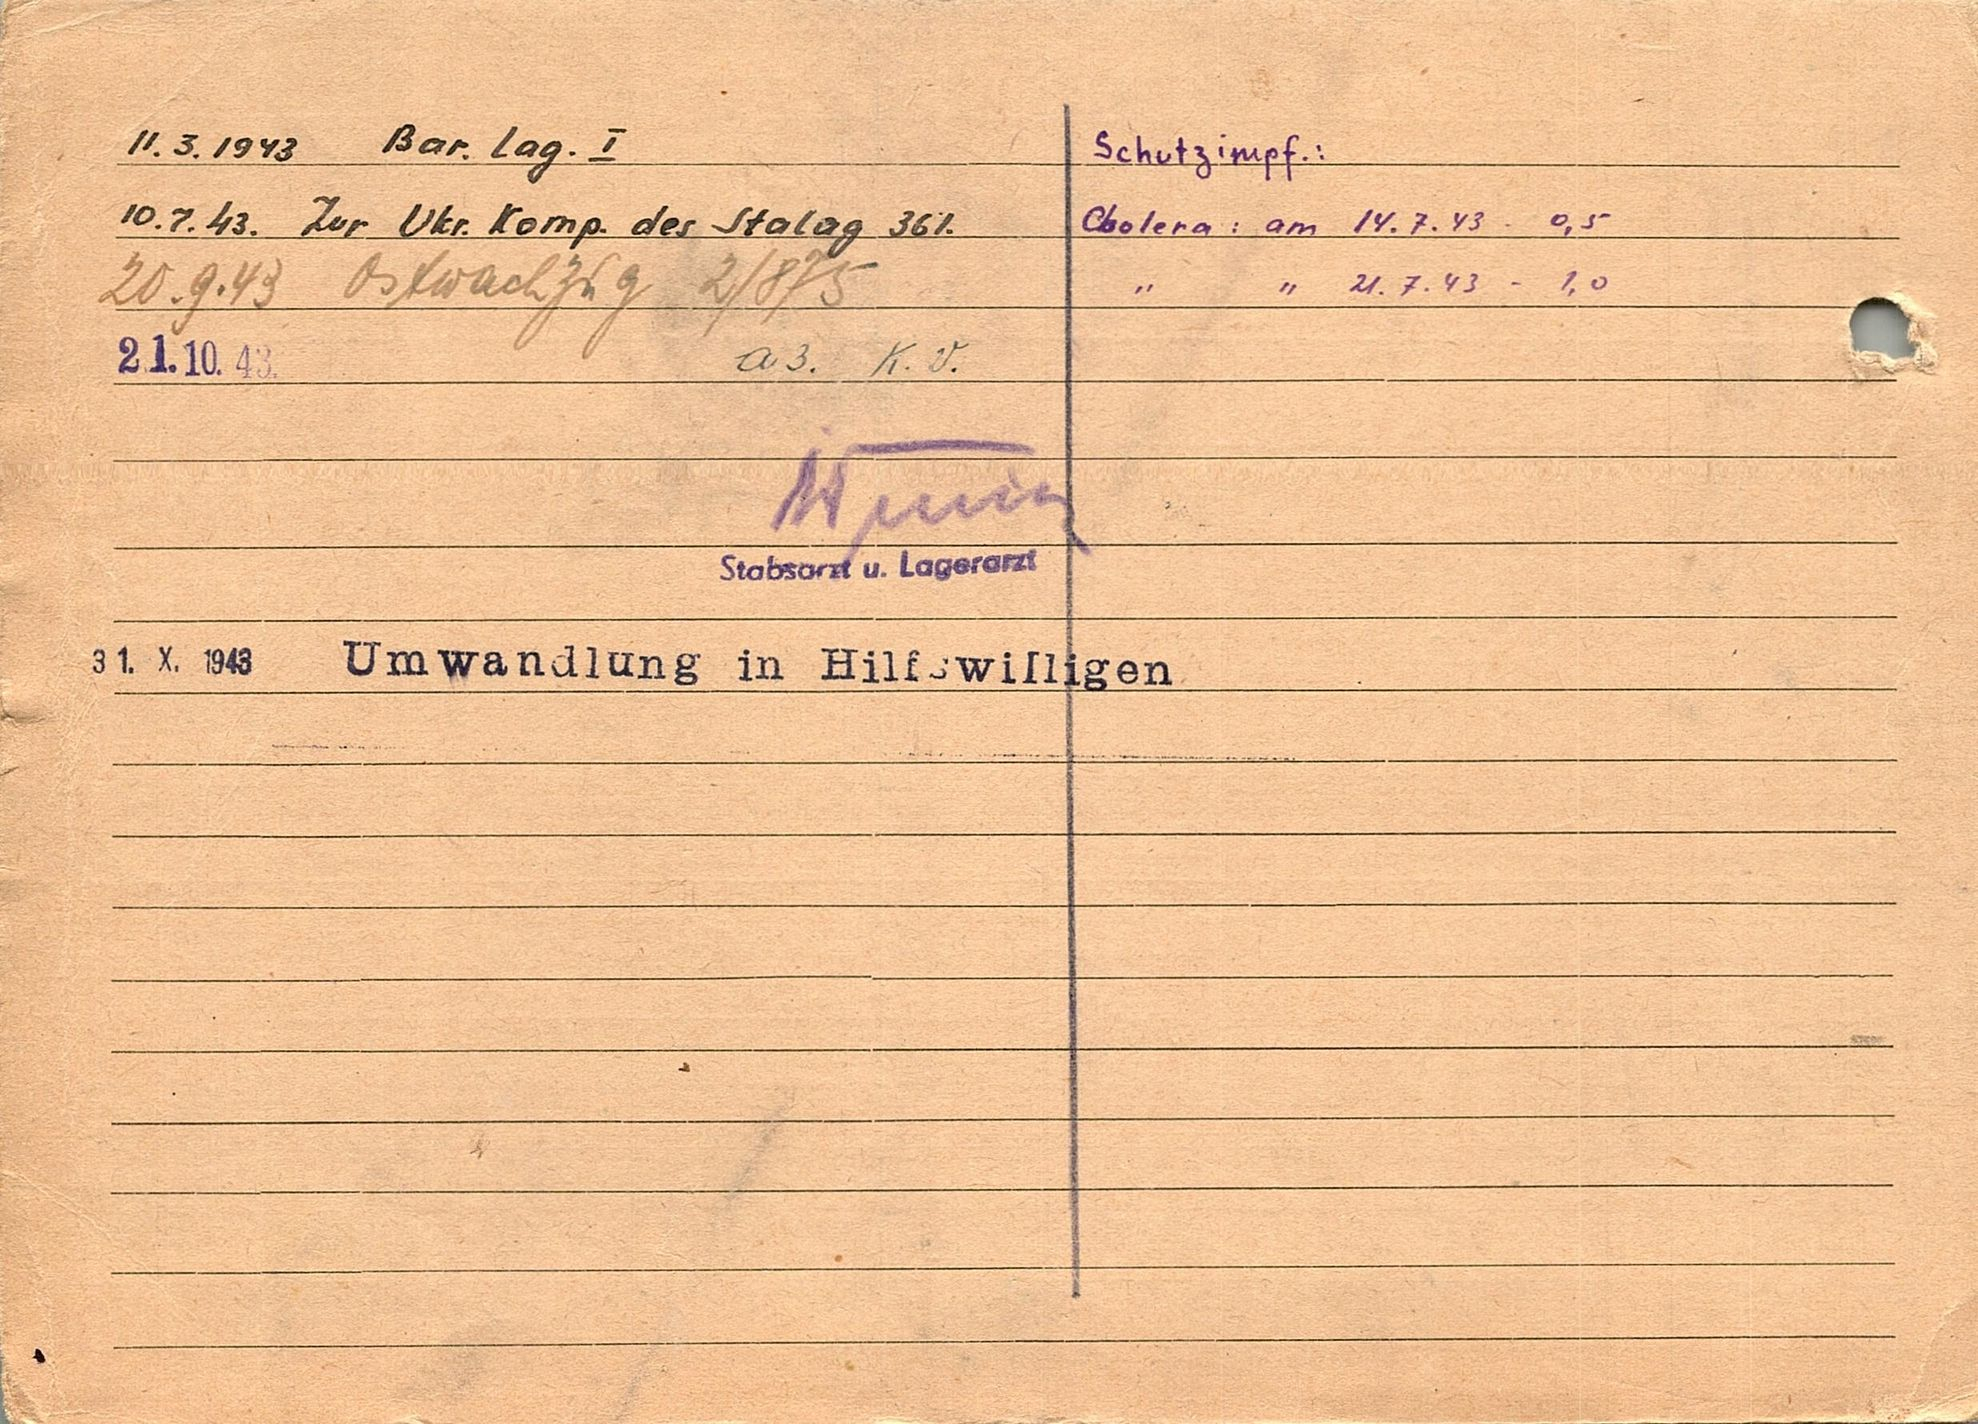 11.3.1943 Bar. Lag. I
10.7.43. Zur Ukr. Komp. des Stalag 361.
20.9.43 Ostwachzug 2/875
21.10.43. a 3. K.V.
Stabsarzt u. Lagerarzt
31. X. 1943 Umwandlung in Hilfswilligen
Schutzimpf.:
Cholera: am 14.7.43 - 0,5
" " 21.7.43 - 1,0